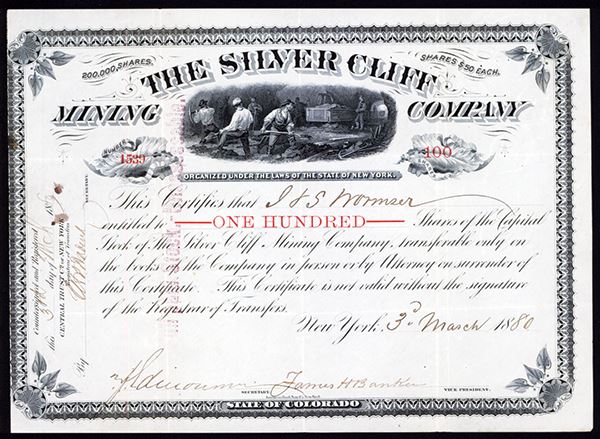 200,000, SHARES. SHARES $50 EACH.
THE SILVER CLIFF
MINING COMPANY
NUMBER 1539 100
ORGANIZED UNDER THE LAWS OF THE STATE OF NEW YORK.
This Certifies that I & S Wormser
entitled to ONE HUNDRED Shares of the Capital
Stock of The Silver Cliff Mining Company, transferable only on
the books of the Company in person or by Attorney on surrender of
this Certificate. This Certificate is not valid without the signature
of the Registrar of Transfers.
New York, 3d March 1880
James H Banker
SECRETARY. VICE PRESIDENT.
STATE OF COLORADO
Countersigned and Registered
this 3d day of Mch 188
CENTRAL TRUST CO. OF NEW YORK
Registrar of Transfers
By
SECRETARY.